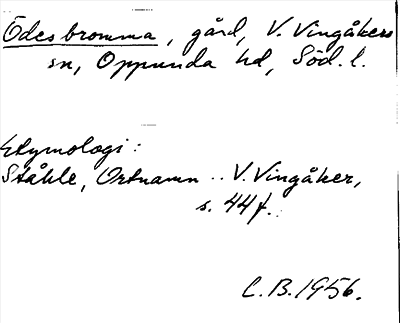 Ödesbromma, gård, V. Vingåkers
sn, Oppunda hd, Söd. l.
Etymologi:
Ståhle, Ortnamn .. V. Vingåker,
s. 44 f.
C. B. 1956.